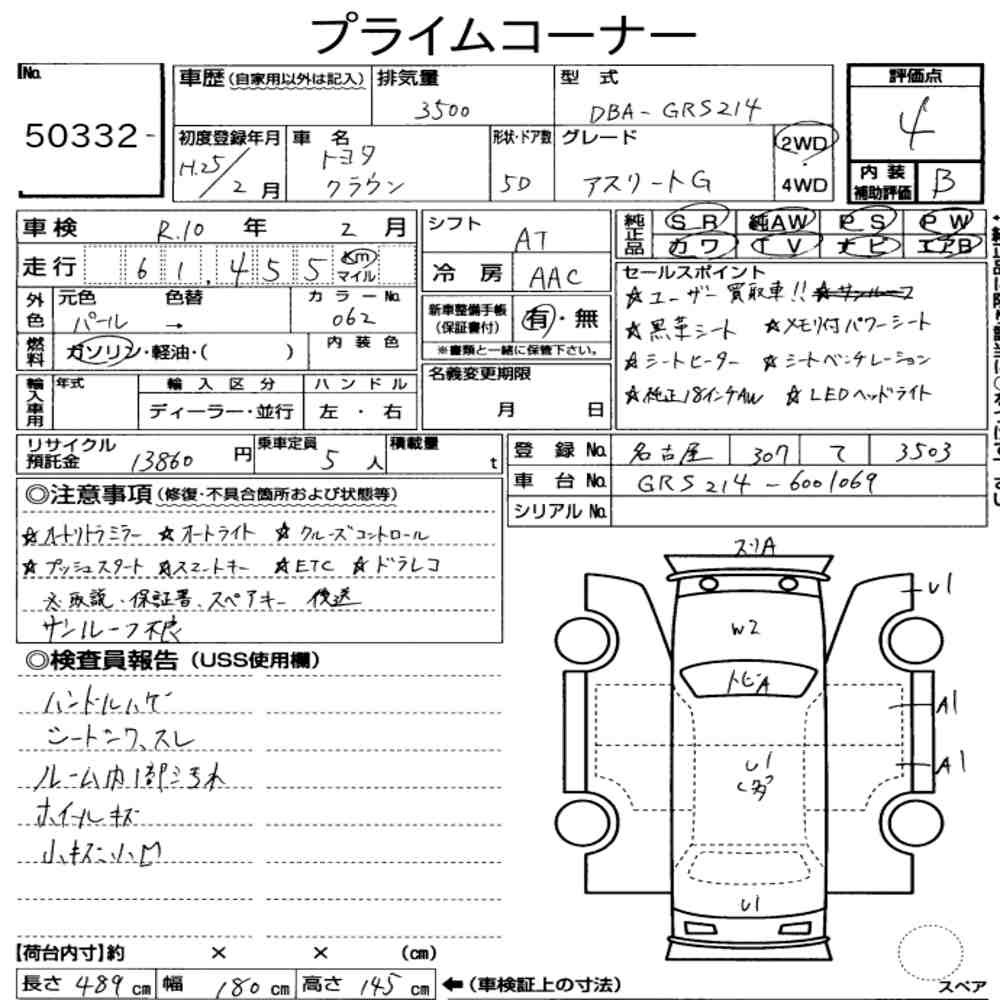 プライムコーナー
No. 50332-
車歴（自家用以外は記入） 排気量 3500 型式 DBA-GRS214
初度登録年月 H.25/2月 車名 トヨタ クラウン 形状・ドア数 5D グレード アスリートG 2WD・4WD
評価点 4
内装補助評価 B
車検 R.10年 2月
走行 61,455 Km マイル
外色 元色 パール 色替 → カラーNo. 062
燃料 ガソリン・軽油・( ) 内装色
輸入車用 年式 輸入区分 ディーラー・並行 ハンドル 左・右
シフト AT
冷房 AAC
新車整備手帳（保証書付） 有・無
※書類と一緒に保管下さい。
名義変更期限 月 日
純正品 SR 純AW PS PW
カワ TV ナビ エアB
セールスポイント
☆ユーザー買取車!! ☆サンルーフ
☆黒革シート ☆メモリ付パワーシート
☆シートヒーター ☆シートベンチレーション
☆純正18インチAW ☆LEDヘッドライト
リサイクル預託金 13860円 乗車定員 5人 積載量 t
登録No. 名古屋 307 て 3503
車台No. GRS214-6001069
シリアルNo.
◎注意事項（修復・不具合箇所および状態等）
☆オートリトラミラー ☆オートライト ☆クルーズコントロール
☆プッシュスタート ☆スマートキー ☆ETC ☆ドラレコ
※取説・保証書、スペアキー 後送
サンルーフ不良
◎検査員報告（USS使用欄）
ハンドルハゲ
シートシワ、スレ
ルーム内1部汚れ
ホイールキズ
小キズ小凹
スリA
U1
W2
トビA
A1
U1
A1
U1
【荷台内寸】約 × × (cm)
長さ 489cm 幅 180cm 高さ 145cm ←（車検証上の寸法）
スペア